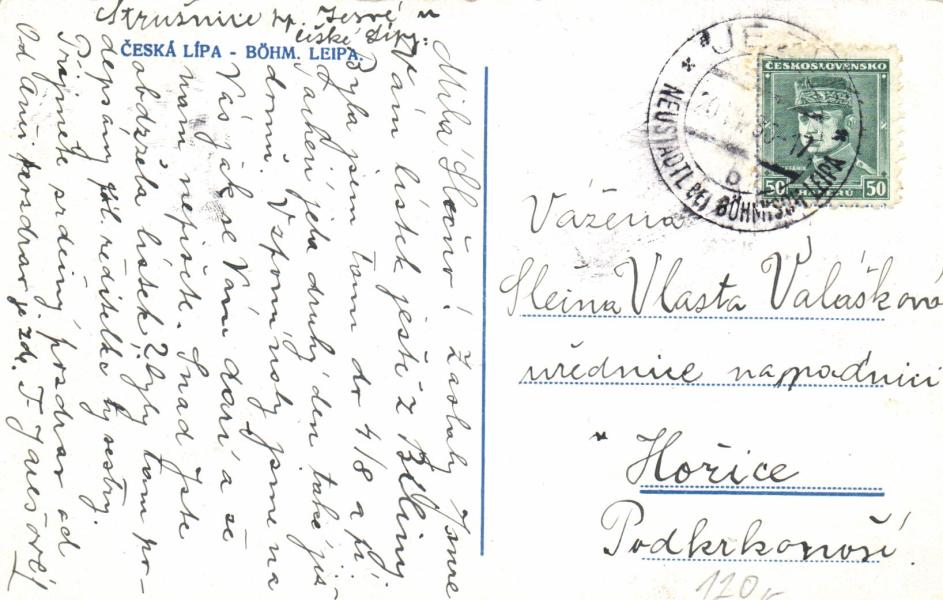 Strušnice np. Jesvé u
České Lípy.
ČESKÁ LÍPA - BÖHM. LEIPA.
Milá Slečno! Zaslaly jsme
Vám lístek ještě z Bíliny
Byla jsem tam do 4/8 a fí.
jela druhý den také jis-
domů. Vzpomínaly jsme na
Vás jak se Vám daří a že
nám nepíšete. Snad jste
obdržela lístek 2 byly tam po-
depsány řditelky sestry.
Přijměte srdečný pozdrav od
Od Ami pozdrav je zde. F. Jarešové!
ČESKOSLOVENSKO
50 HALÉŘŮ 50
NEUSTADTL BEI BÖHM. LEIPA
Vážená
Slečna Vlasta Valášková
úřednice na poštnici
Hořice
Podkrkonoší
120,-